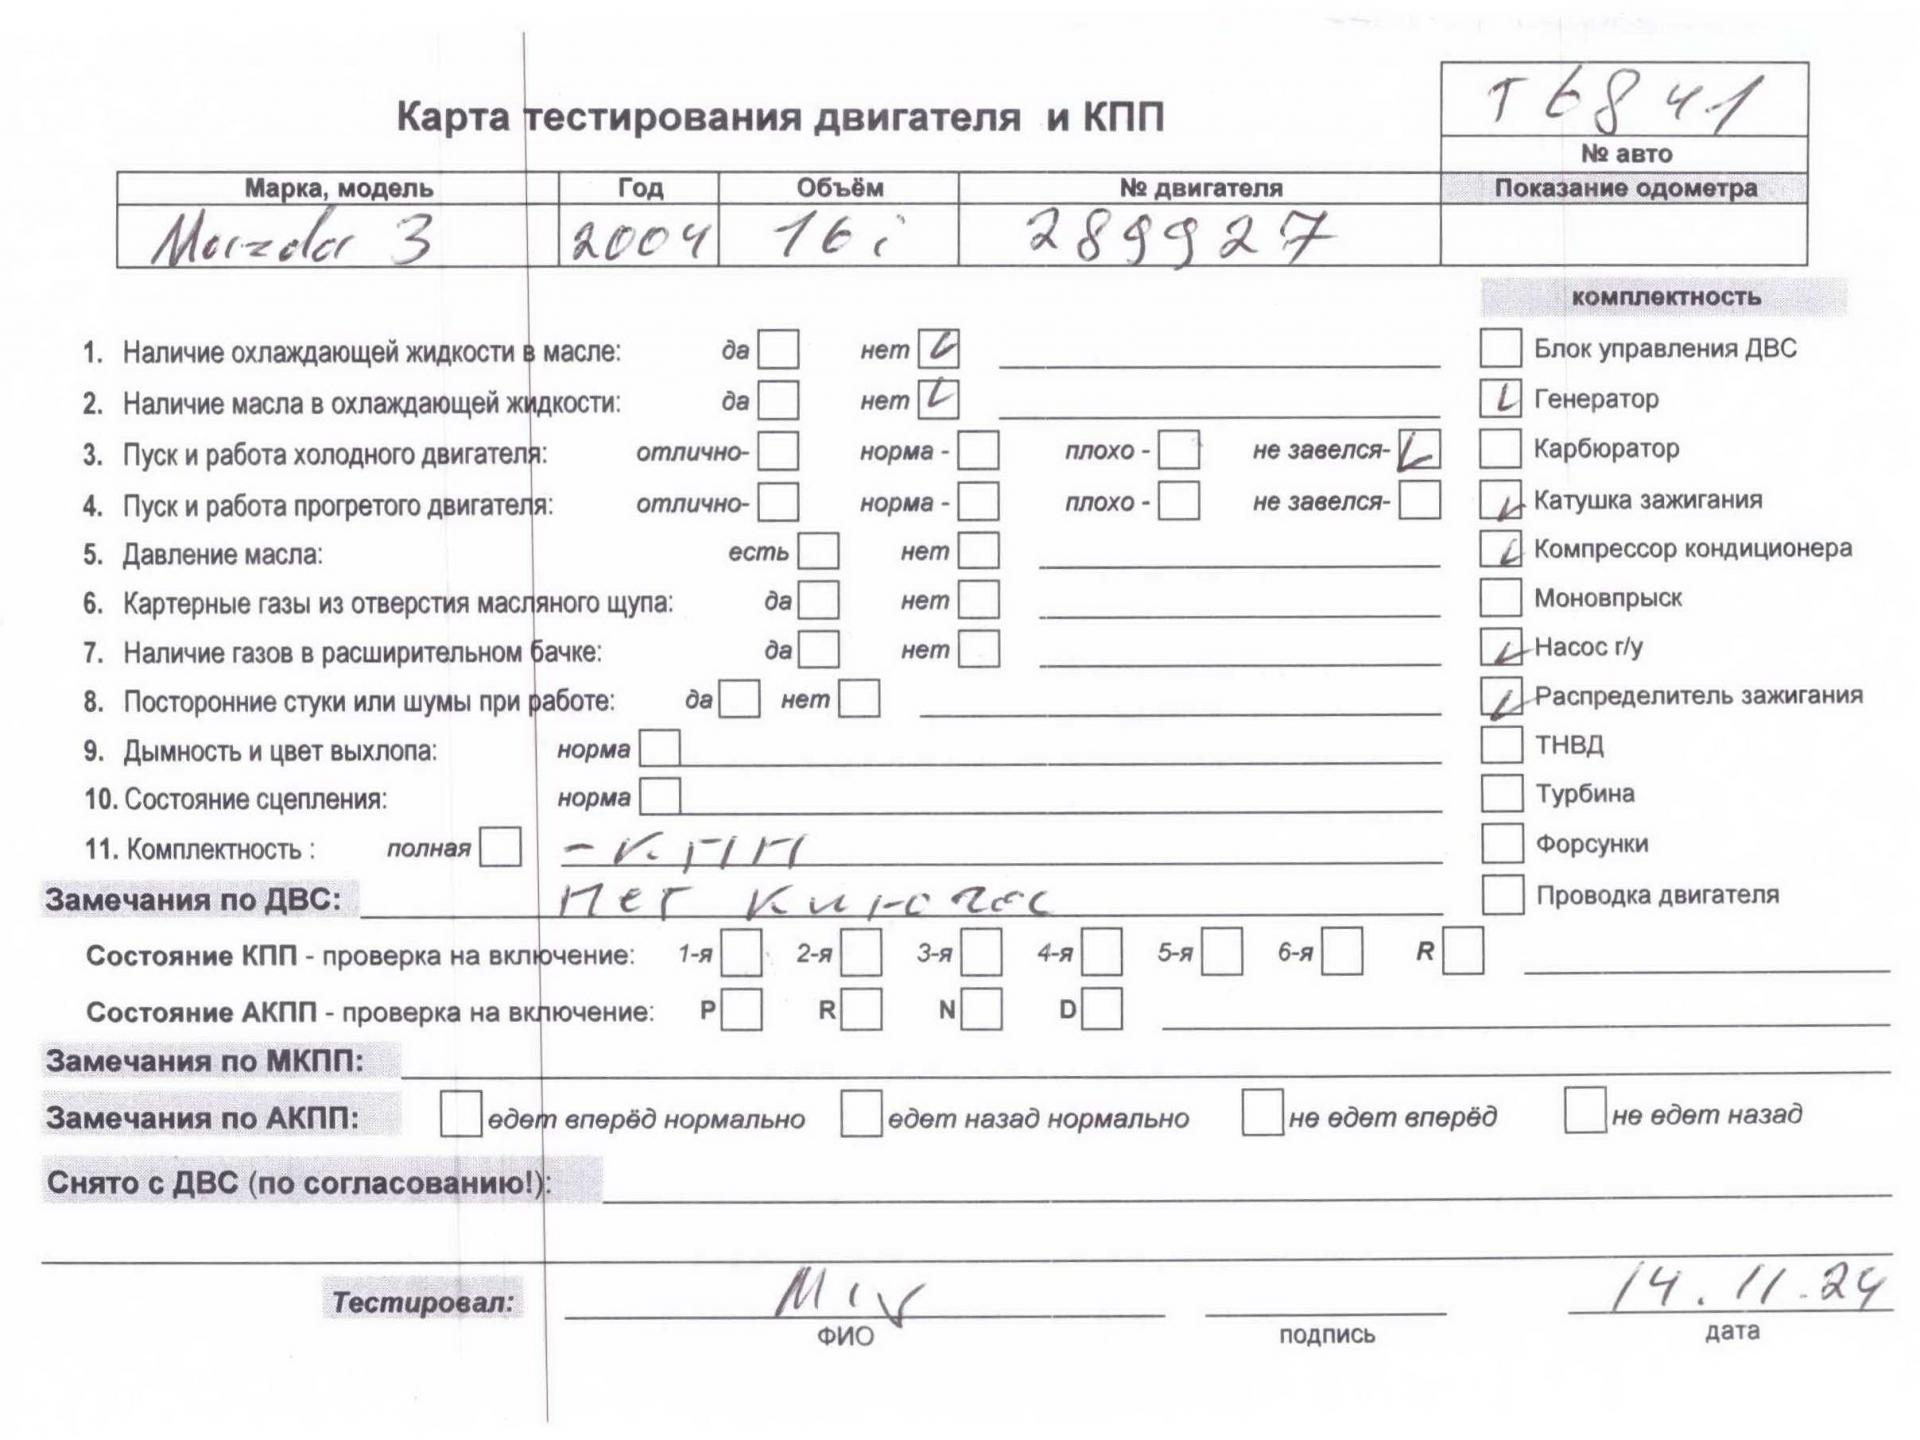 Т6841
Карта тестирования двигателя и КПП
№ авто
Марка, модель Год Объём № двигателя Показание одометра
Mazda 3 2004 16i 289927
комплектность
1. Наличие охлаждающей жидкости в масле: да нет
Блок управления ДВС
2. Наличие масла в охлаждающей жидкости: да нет
Генератор
3. Пуск и работа холодного двигателя: отлично- норма - плохо - не завелся-
Карбюратор
4. Пуск и работа прогретого двигателя: отлично- норма - плохо - не завелся-
Катушка зажигания
5. Давление масла: есть нет
Компрессор кондиционера
6. Картерные газы из отверстия масляного щупа: да нет
Моновпрыск
7. Наличие газов в расширительном бачке: да нет
Насос г/у
8. Посторонние стуки или шумы при работе: да нет
Распределитель зажигания
9. Дымность и цвет выхлопа: норма
ТНВД
10. Состояние сцепления: норма
Турбина
11. Комплектность : полная - КПП
Форсунки
Замечания по ДВС: Нет
Проводка двигателя
Состояние КПП - проверка на включение: 1-я 2-я 3-я 4-я 5-я 6-я R
Состояние АКПП - проверка на включение: P R N D
Замечания по МКПП:
Замечания по АКПП: едет вперёд нормально едет назад нормально не едет вперёд не едет назад
Снято с ДВС (по согласованию!):
Тестировал: 14.11.24
ФИО подпись дата